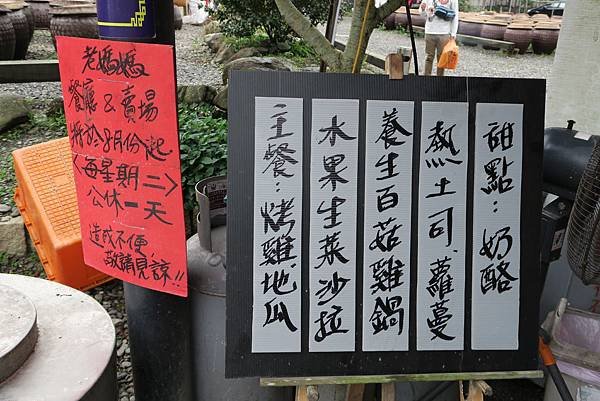 老媽媽
餐廳&賣場
將於8月份起
<每星期二>
公休一天
造成不便
敬請見諒!!
主餐：烤雞地瓜
水果生菜沙拉
養生百菇雞鍋
熱土司．蘿蔓
甜點：奶酪